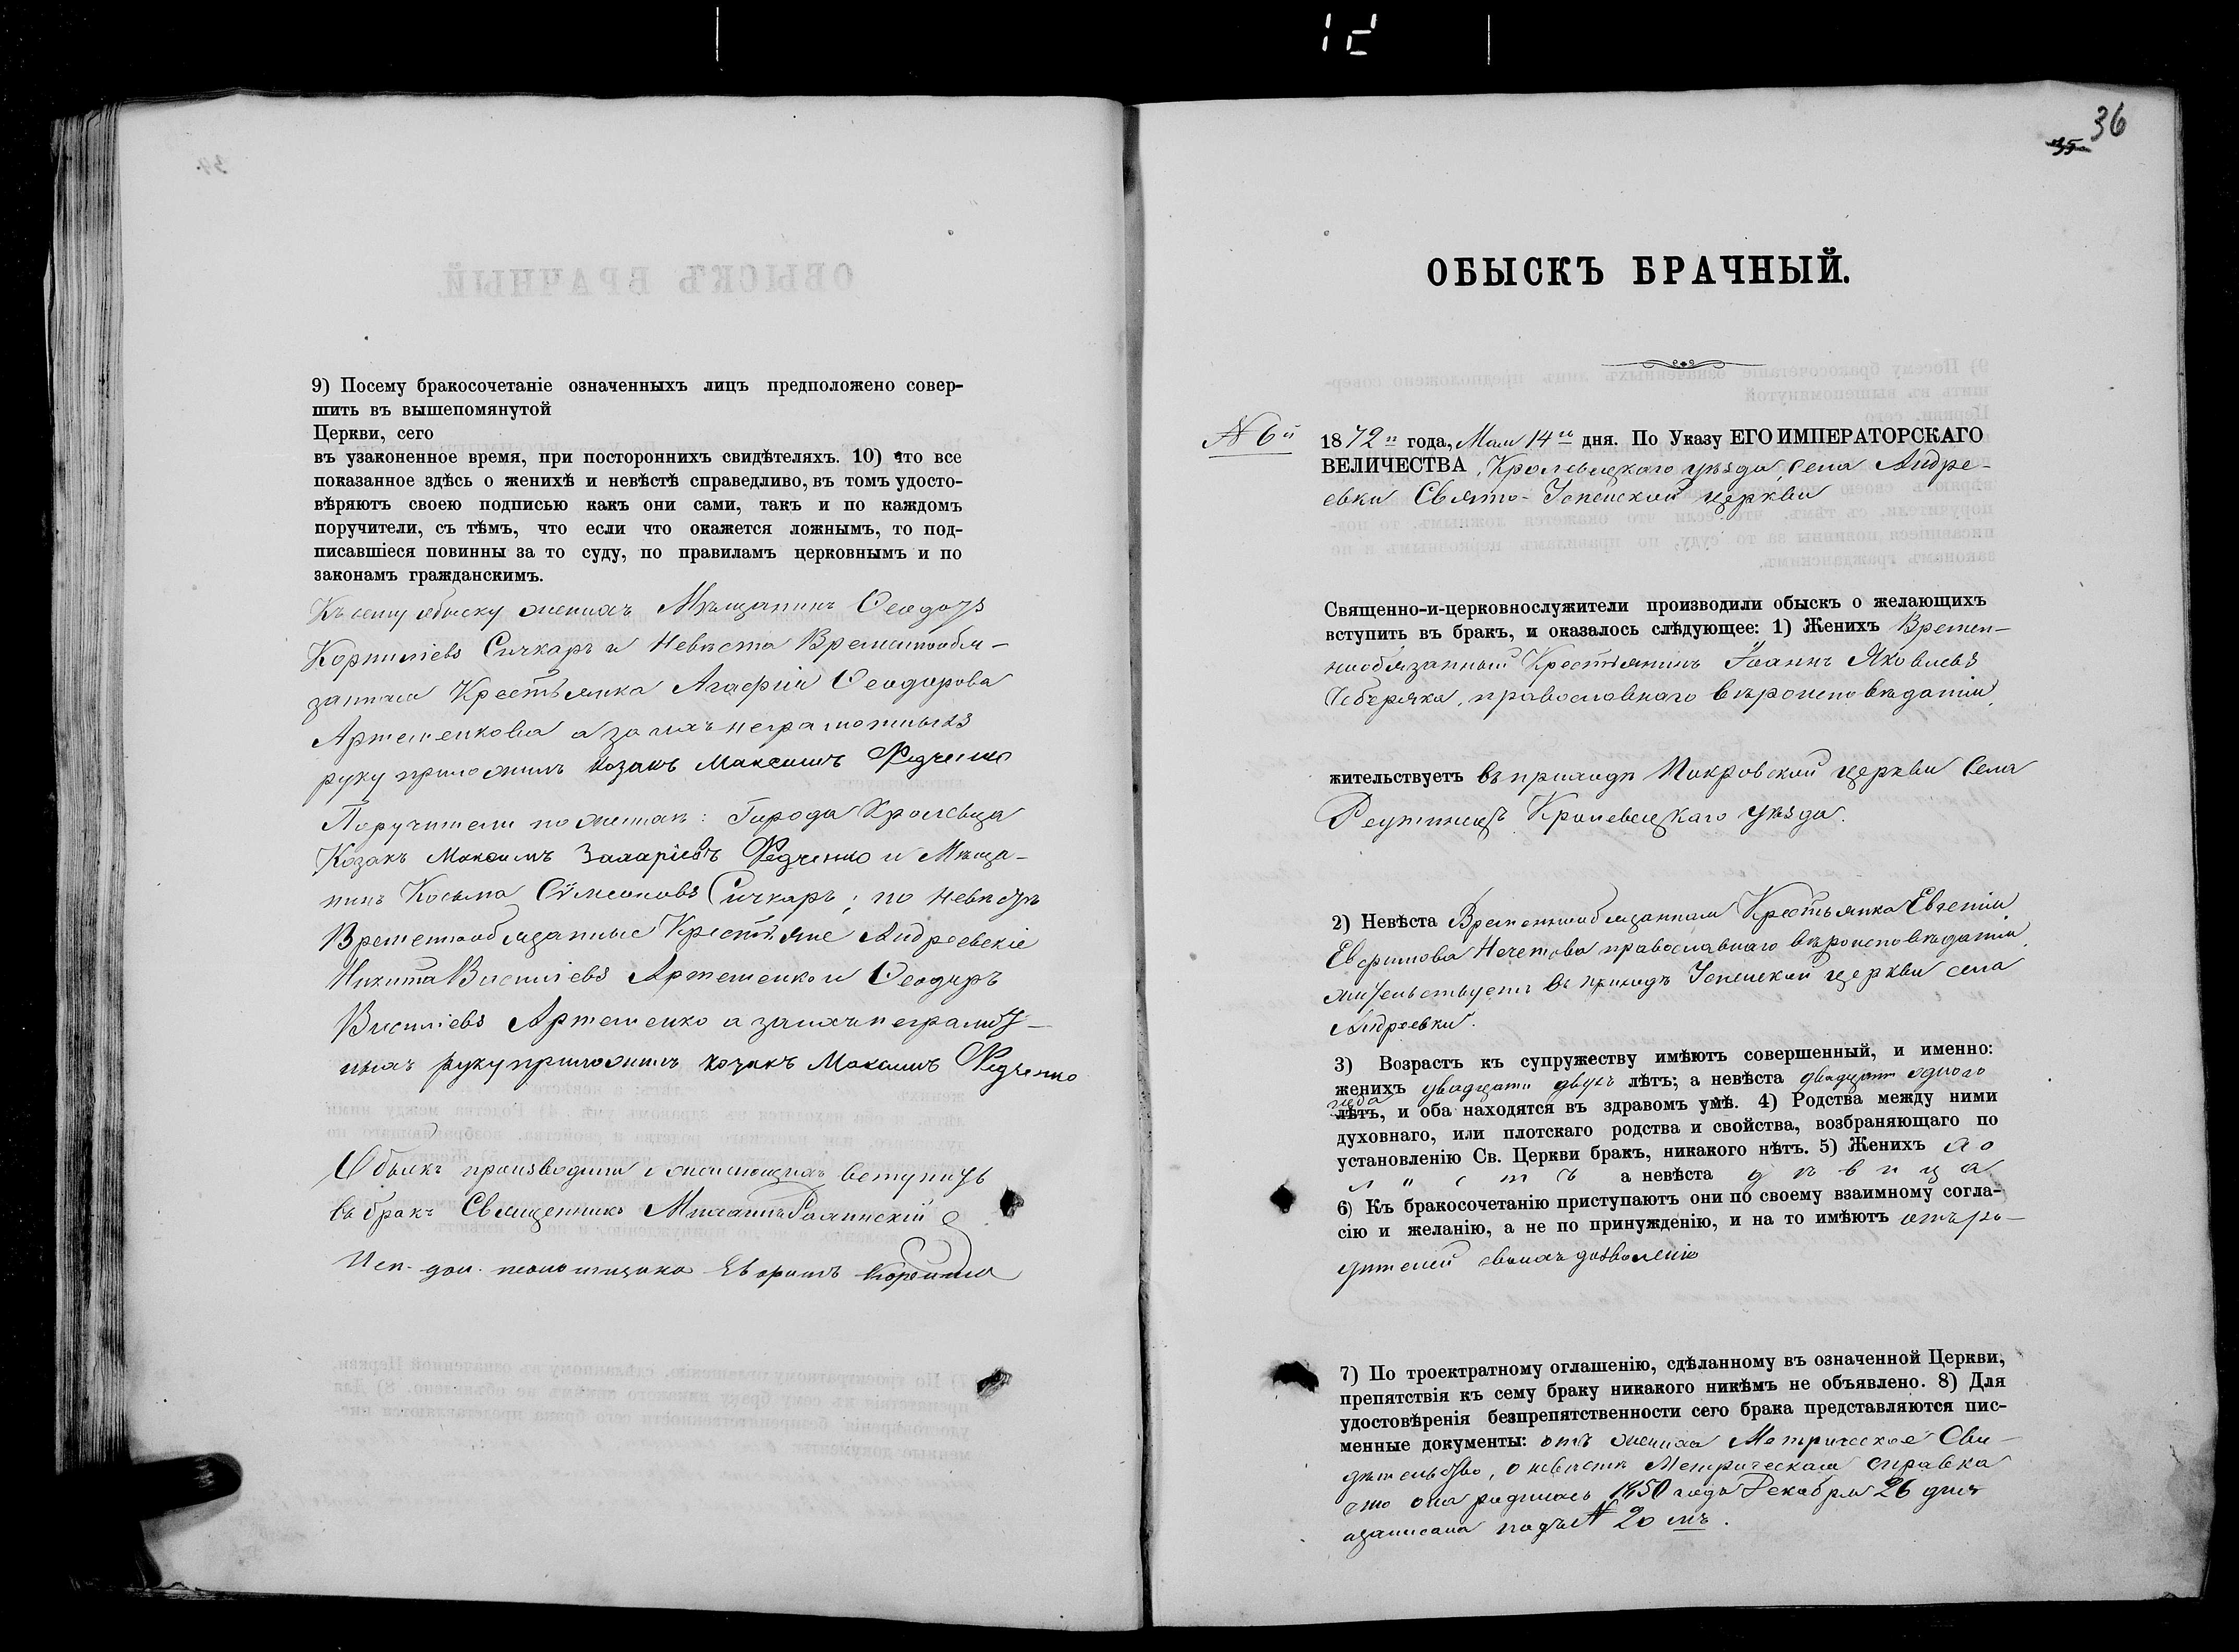 9) Посему бракосочетаніе означенныхъ лицъ предположено совер-
шить въ вышепомянутой
Церкви, сего
въ узаконенное время, при постороннихъ свидѣтеляхъ. 10) что все
показанное здѣсь о женихѣ и невѣстѣ справедливо, въ томъ удосто-
вѣряютъ своею подписью какъ они сами, такъ и по каждомъ
поручители, съ тѣмъ, что если что окажется ложнымъ, то под-
писавшіеся повинны за то суду, по правиламъ церковнымъ и по
законамъ гражданскимъ.
Къ сему обыску женихъ Мѣщанинъ Ѳеодотъ
Корниліевъ Сичкарь и Невѣста Временнообя-
занная Крестьянка Агафія Ѳеодорова
Артеменкова а за ихъ неграмотныхъ
руку приложилъ козакъ Максимъ Федченко
Поручители по женихѣ: Города Кролевца
Козакъ Максимъ Захаріевъ Федченко и Мѣща-
нинъ Косьма Сѵмеоновъ Сичкарь; по невѣстѣ
Временнообязанные Крестьяне Андреевскіе
Никита Василіевъ Артеменко и Ѳеодоръ
Василіевъ Артеменко а за ихъ неграмот-
ныхъ руку приложилъ козакъ Максимъ Федченко
Обыскъ производили о желающихъ вступить
въ бракъ Священникъ Михаилъ
Исп. дол. псаломщика Евфимъ
36
35
ОБЫСКЪ БРАЧНЫЙ.
№ 6й
1872го года, Мая 14го дня. По Указу ЕГО ИМПЕРАТОРСКАГО
ВЕЛИЧЕСТВА, Кролевецкаго уѣзда, села Андре-
евки Свято-Успенской церкви
Священно-и-церковнослужители производили обыскъ о желающихъ
вступить въ бракъ, и оказалось слѣдующее: 1) Женихъ Времен-
нообязанный Крестьянинъ Іоаннъ Яковлевъ
Чеберяка, православнаго вѣроисповѣданія,
жительствуетъ въ приходѣ Покровской церкви Села
Реутинецъ Кролевецкаго уѣзда.
2) Невѣста Временнообязанная Крестьянка Евгенія
Евфимова Нечетова православнаго вѣроисповѣданія
жительствуетъ въ приходѣ Успенской церкви села
Андреевки.
3) Возрастъ къ супружеству имѣютъ совершенный, и именно:
женихъ двадцати двухъ лѣтъ; а невѣста двадцати одного
года
лѣтъ, и оба находятся въ здравомъ умѣ. 4) Родства между ними
духовнаго, или плотскаго родства и свойства, возбраняющаго по
установленію Св. Церкви бракъ, никакого нѣтъ. 5) Женихъ хо
лостъ а невѣста дѣвица
6) Къ бракосочетанію приступаютъ они по своему взаимному согла-
сію и желанію, а не по принужденію, и на то имѣютъ отъ ро-
дителей своихъ дозволеніе
7) По троектратному оглашенію, сдѣланному въ означенной Церкви,
препятствія къ сему браку никакого никѣмъ не объявлено. 8) Для
удостовѣренія безпрепятственности сего брака представляются пис-
менные документы: отъ жениха Метрическое Сви-
дѣтельство, о невѣстѣ Метрическая справка
что она родилась 1850 года Декабря 26 дня
записана подъ № 20мъ.